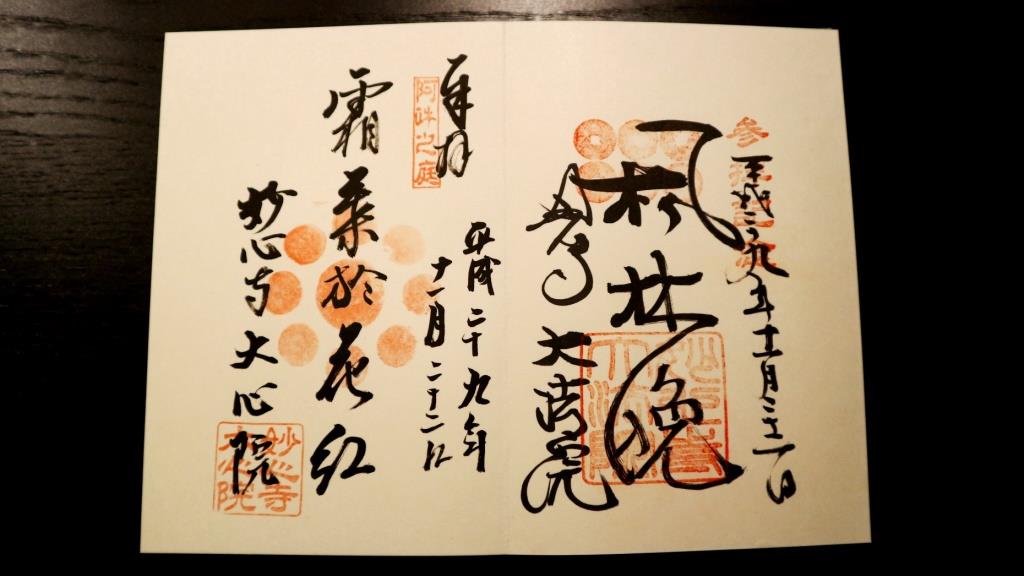 参拝記念
平成二九年十一月二十二日
楓林晩
妙心寺 大法院
奉拝
阿吽之庭
平成二十九年
十一月二十二日
霜葉於花紅
妙心寺大心院
妙心寺
大心院